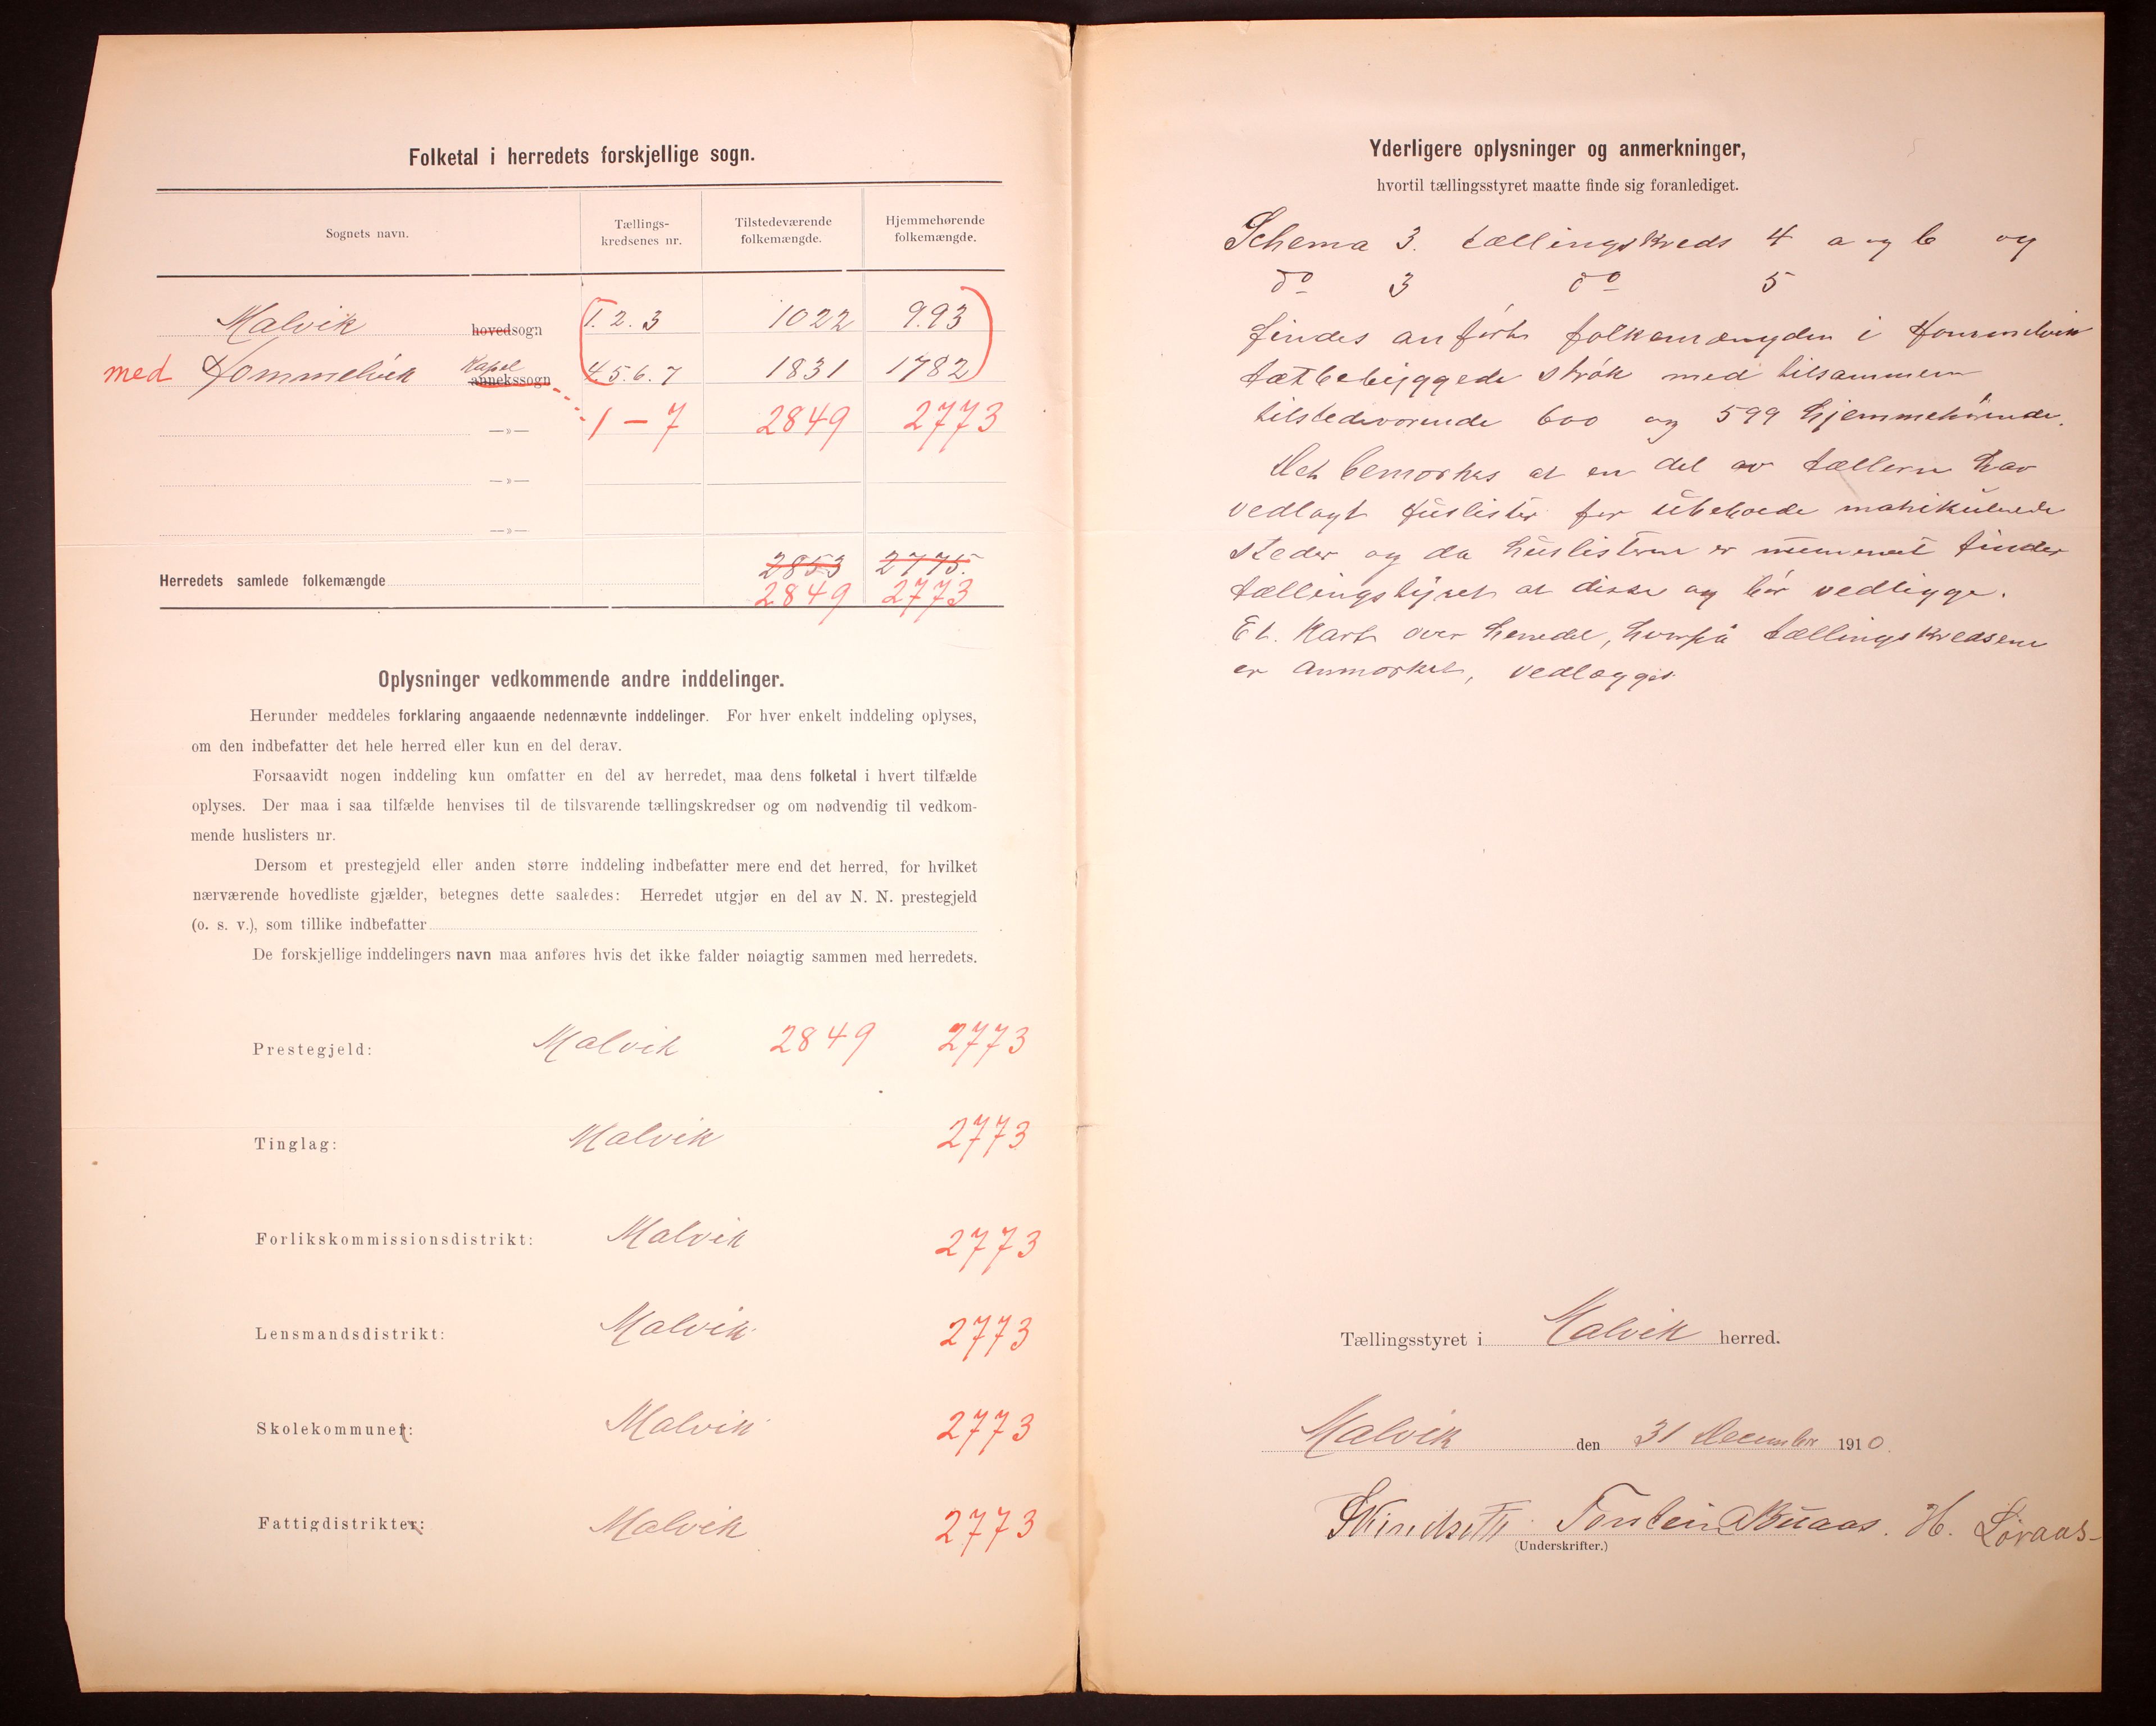 Folketal i herredets forskjellige sogn.
Sognets navn. Tællings- kredsenes nr. Tilstedeværende folkemængde. Hjemmehørende folkemængde.
Malvik hovedsogn 1. 2. 3 1022 993
med Hommelvik Kapel annekssogn 4. 5. 6. 7 1831 1782
—»— 1 – 7 2849 2773
—»—
—»—
2853 2775.
Herredets samlede folkemængde
2849 2773
Oplysninger vedkommende andre inddelinger.
Herunder meddeles forklaring angaaende nedennævnte inddelinger. For hver enkelt inddeling oplyses,
om den indbefatter det hele herred eller kun en del derav.
Forsaavidt nogen inddeling kun omfatter en del av herredet, maa dens folketal i hvert tilfælde
oplyses. Der maa i saa tilfælde henvises til de tilsvarende tællingskredser og om nødvendig til vedkom-
mende huslisters nr.
Dersom et prestegjeld eller anden større inddeling indbefatter mere end det herred, for hvilket
nærværende hovedliste gjælder, betegnes dette saaledes: Herredet utgjør en del av N. N. prestegjeld
(o. s. v.), som tillike indbefatter
De forskjellige inddelingers navn maa anføres hvis det ikke falder nøiagtig sammen med herredets.
Prestegjeld: Malvik 2849 2773
Tinglag: Malvik 2773
Forlikskommissionsdistrikt: Malvik 2773
Lensmandsdistrikt: Malvik 2773
Skolekommuner: Malvik 2773
Fattigdistrikter: Malvik 2773
Yderligere oplysninger og anmerkninger,
hvortil tællingsstyret maatte finde sig foranlediget.
Schema 3. tællingskreds 4 a og b og
do 3 do 5
findes anført folkemængden i Hommelvik
tætbebyggede strøk med tilsammen
tilstedeværende 600 og 599 hjemmehørende.
Det bemærkes at en del av tællerne har
vedlagt huslister for ubeboede matrikulerede
steder og da huslisterne er numereret finder
tællingstyret at disse og bør vedligge.
Et. Kart over herredet, hvorpå tællingskredsene
er anmærket, vedlægges
Tællingsstyret i Malvik herred.
Malvik den 31 December 1910.
Buaas. H. Løraas
(Underskrifter.)